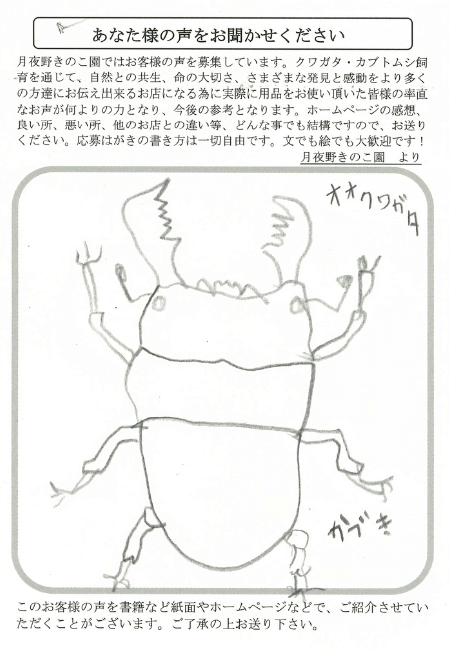 あなた様の声をお聞かせください
月夜野きのこ園ではお客様の声を募集しています。クワガタ・カブトムシ飼
育を通じて、自然との共生、命の大切さ、さまざまな発見と感動をより多く
の方達にお伝え出来るお店になる為に実際に用品をお使い頂いた皆様の率直
なお声が何よりの力となり、今後の参考となります。ホームページの感想、
良い所、悪い所、他のお店との違い等、どんな事でも結構ですので、お送り
ください。応募はがきの書き方は一切自由です。文でも絵でも大歓迎です！
月夜野きのこ園　より
オオクワガタ
かづき
このお客様の声を書籍など紙面やホームページなどで、ご紹介させてい
ただくことがございます。ご了承の上お送り下さい。